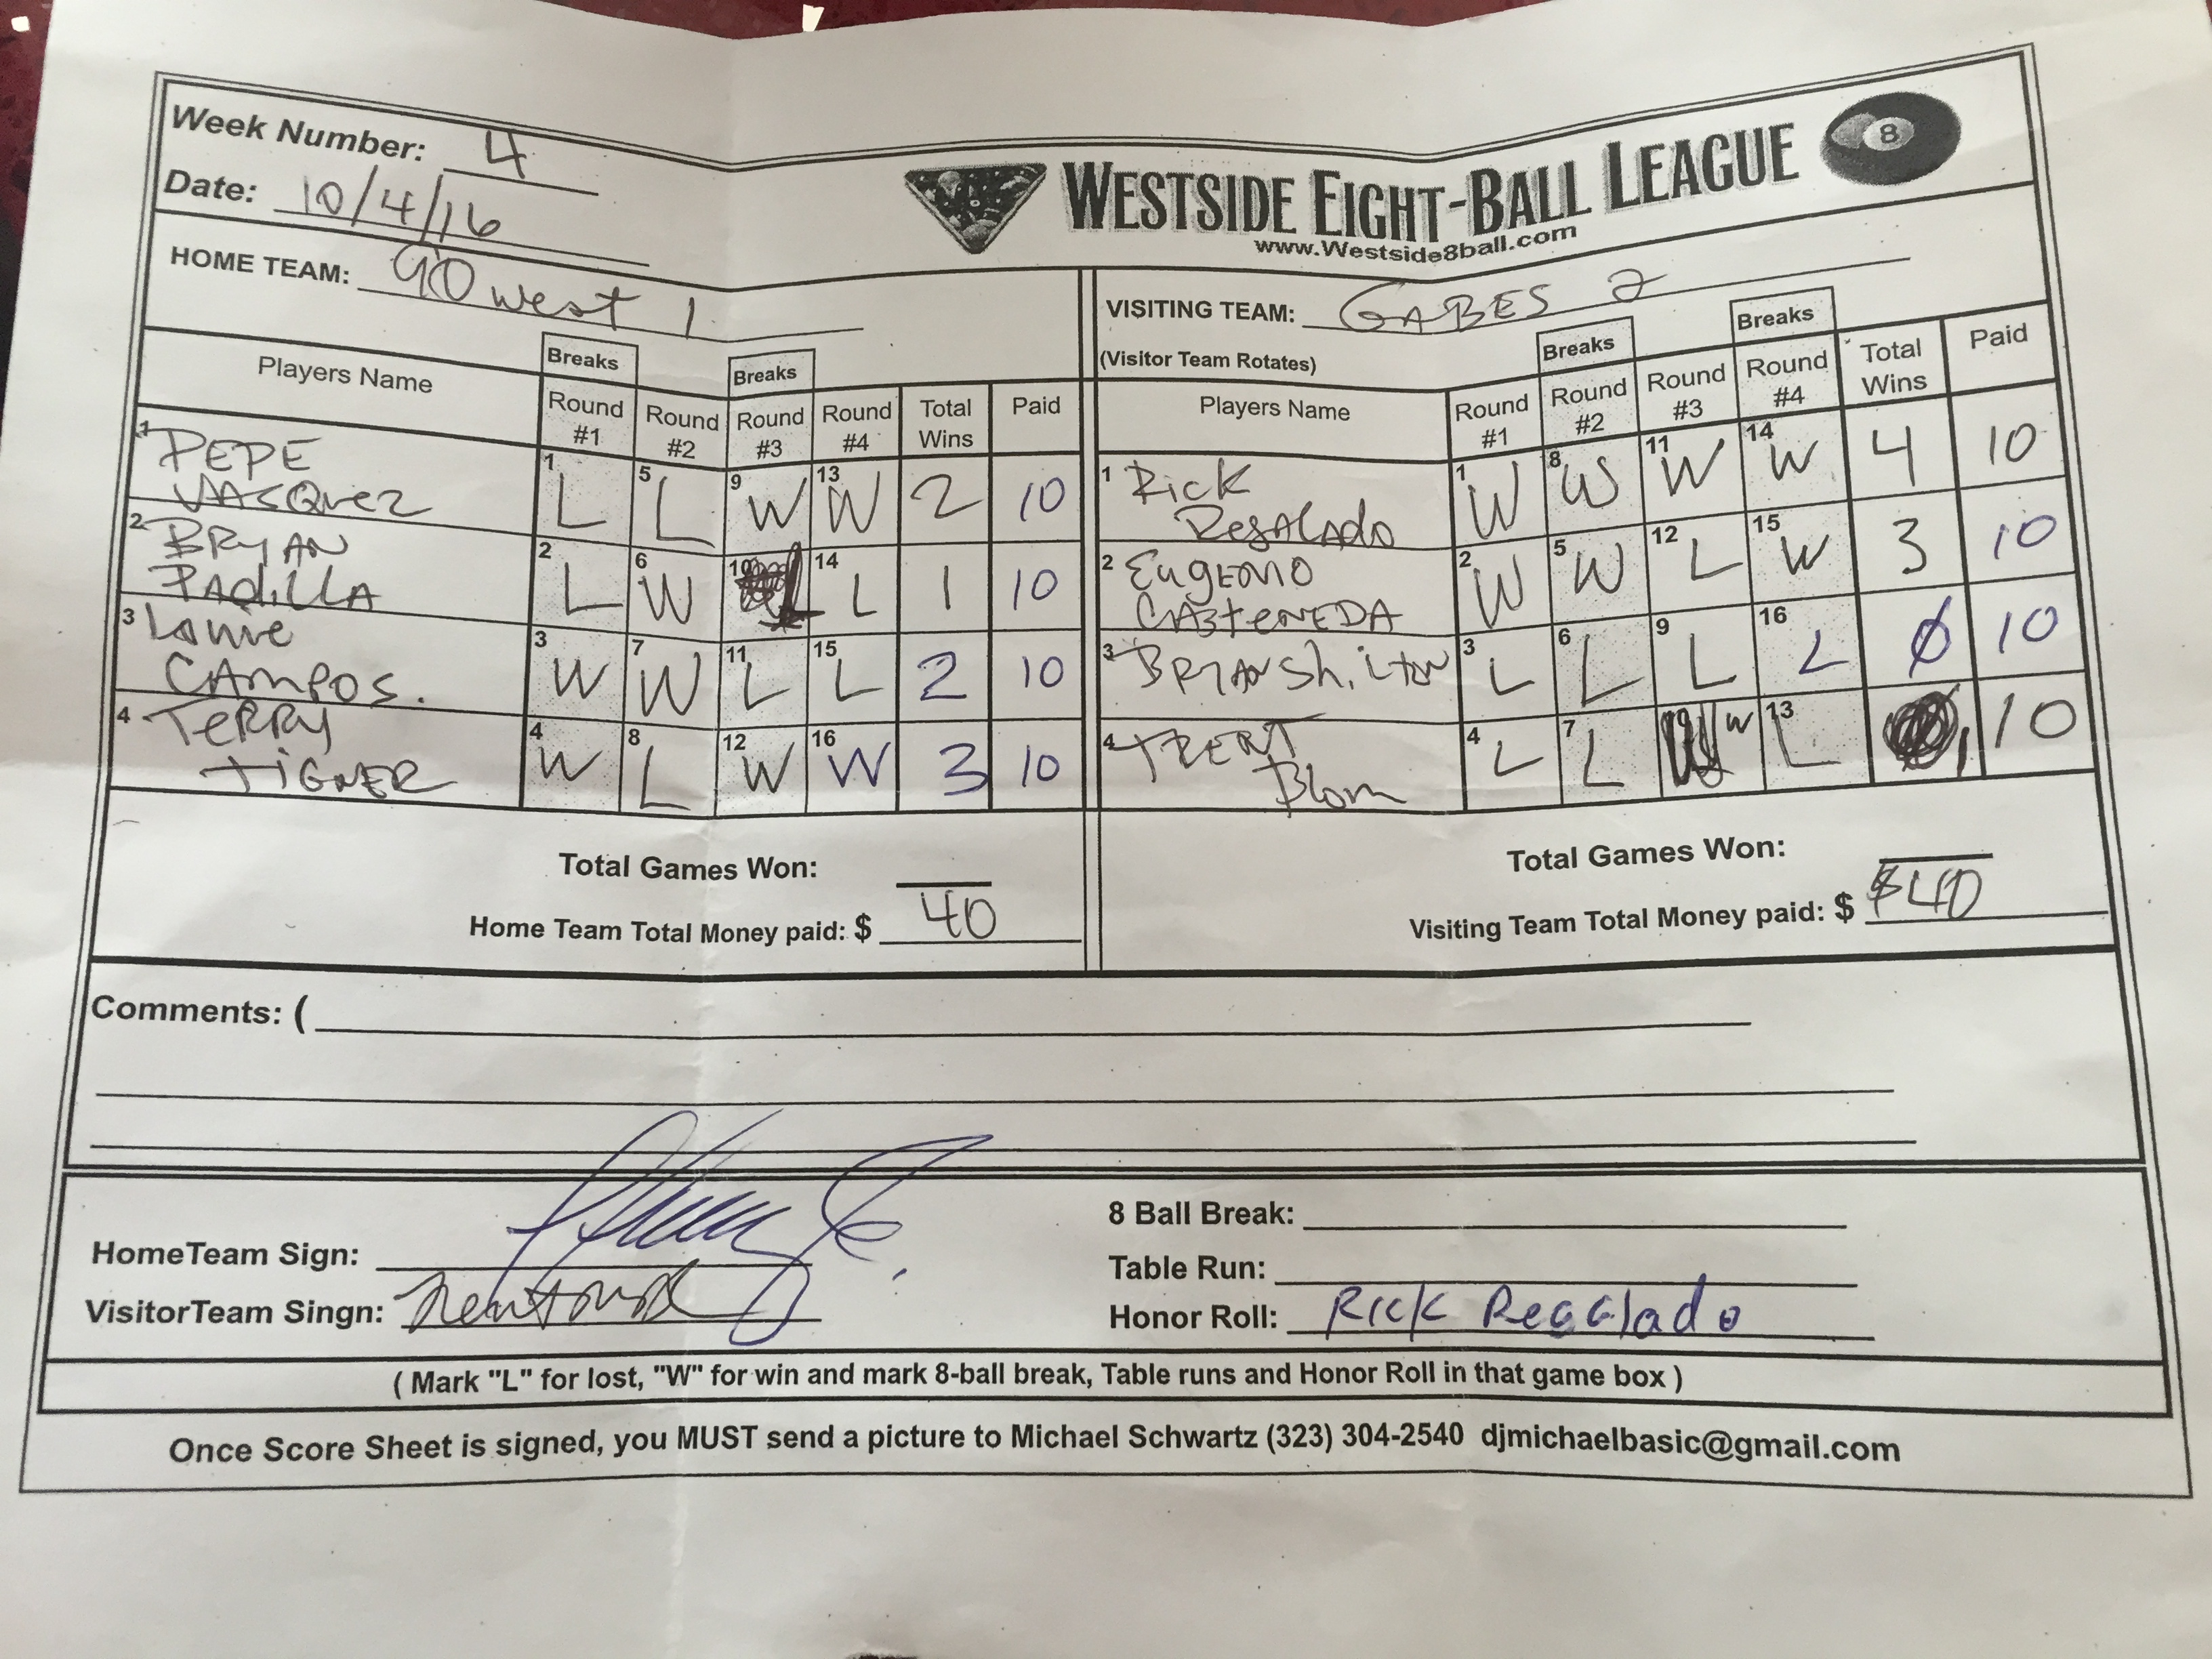 Week Number: 4
Date: 10/4/16
WESTSIDE EIGHT-BALL LEAGUE
8
www.Westside8ball.com
HOME TEAM: 90 west 1
Players Name Breaks Round #1 Round #2 Breaks Round #3 Round #4 Total Wins Paid
1 PEPE VASQuez 1 L 5 L 9 W 13 W 2 10
2 BRYAN PAdiLLA 2 L 6 W 10 L 14 L 1 10
3 CAMPOS. 3 W 7 W 11 L 15 L 2 10
4 TERRY TiGNER 4 W 8 L 12 W 16 W 3 10
Total Games Won:
Home Team Total Money paid: $ 40
VISITING TEAM: GABES 2
(Visitor Team Rotates)
Players Name Round #1 Breaks Round #2 Round #3 Breaks Round #4 Total Wins Paid
1 Rick RegALAdo 1 W 8 W 11 W 14 W 4 10
2 EugENio CASteNEDA 2 W 5 W 12 L 15 W 3 10
3 BRYAN Shilton 3 L 6 L 9 L 16 L 0 10
4 TRENT Blom 4 L 7 L 10 W 13 L 1 10
Total Games Won:
Visiting Team Total Money paid: $ $40
Comments: (
HomeTeam Sign:
VisitorTeam Singn:
8 Ball Break:
Table Run:
Honor Roll: Rick Regalado
( Mark "L" for lost, "W" for win and mark 8-ball break, Table runs and Honor Roll in that game box )
Once Score Sheet is signed, you MUST send a picture to Michael Schwartz (323) 304-2540 djmichaelbasic@gmail.com